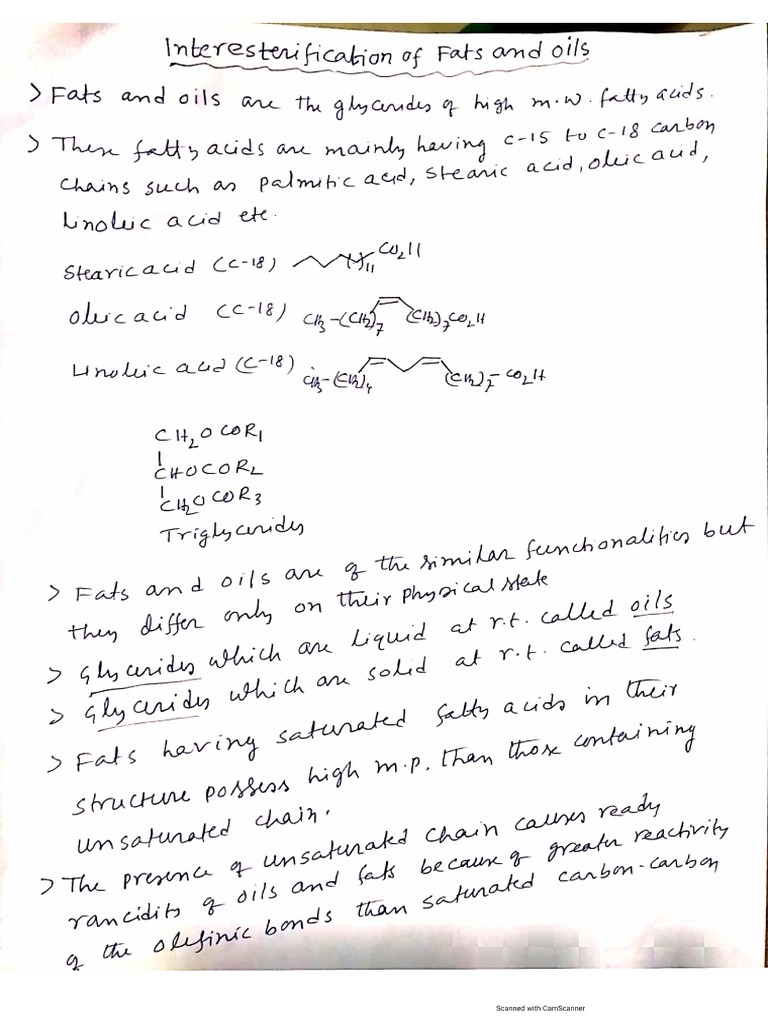 Interesterification of Fats and oils
> Fats and oils are the glycerides of high m.w. fatty acids.
> These fatty acids are mainly having C-15 to C-18 carbon
chains such as palmitic acid, stearic acid, oleic acid,
linoleic acid etc.
Stearic acid (C-18) CO2H
11
Oleic acid (C-18) CH3-(CH2)7 (CH2)7CO2H
Linoleic acid (C-18) CH3-(CH2)4 (CH2)7-CO2H
CH2OCOR1
CHOCOR2
CH2OCOR3
Triglycerides
> Fats and oils are of the similar functionalities but
they differ only on their physical state
> Glycerides which are liquid at r.t. called oils
> Glycerides which are solid at r.t. called fats.
> Fats having saturated fatty acids in their
structure possess high m.p. than those containing
unsaturated chain.
> The presence of unsaturated chain causes ready
rancidity of oils and fats because of greater reactivity
of the olefinic bonds than saturated carbon-carbon
Scanned with CamScanner